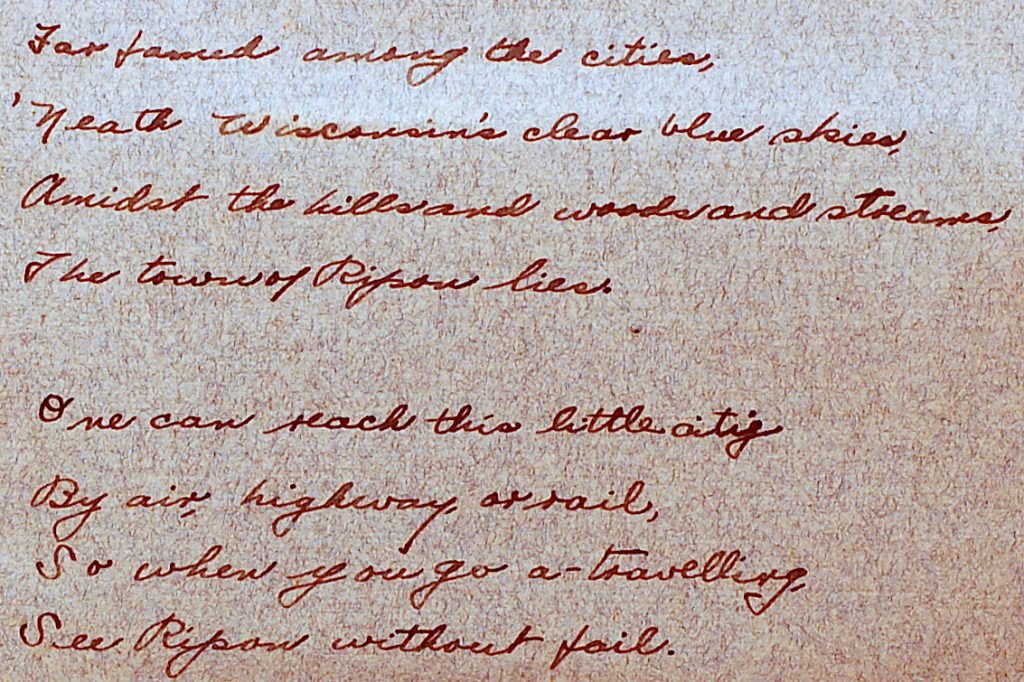 Far famed among the cities,
'Neath Wisconsin's clear blue skies,
Amidst the hills and woods and streams,
The town of Ripon lies.
One can reach this little city
By air, highway, or rail,
So when you go a-travelling,
See Ripon without fail.